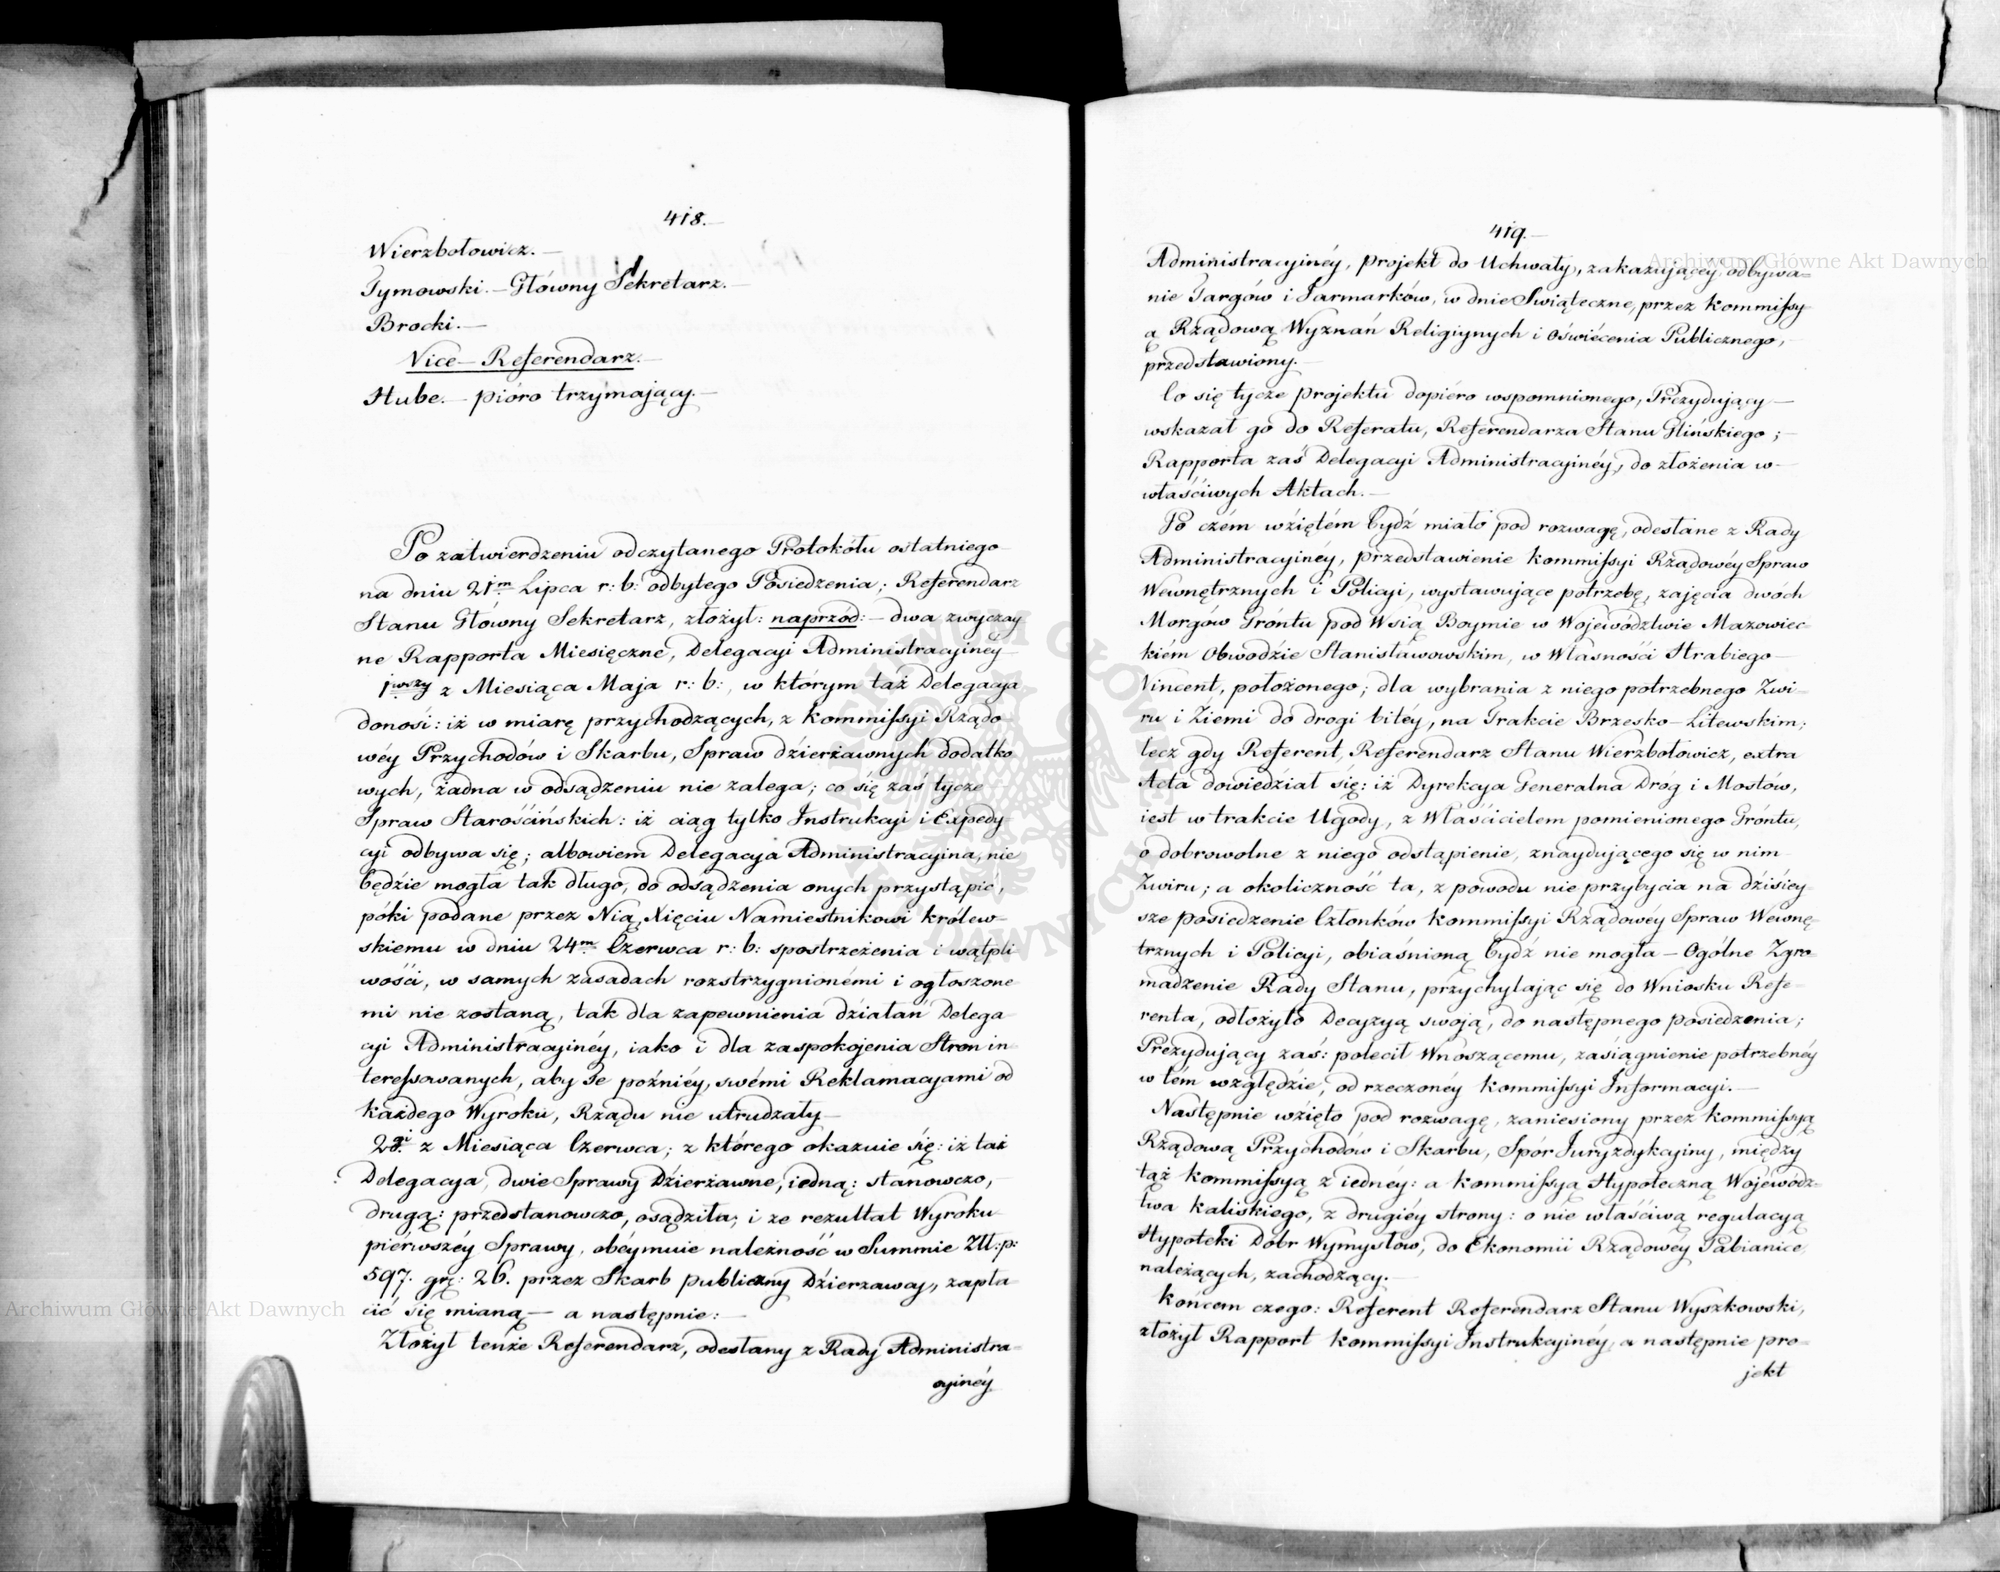 418.
Wierzbołowicz.—
Tymowski.—Główny Sekretarz.—
Brocki.—
Vice-Referendarz.—
Hube.— pióro trzymający.—
Po zatwierdzeniu odczytanego Protokółu ostatniego
na dniu 21m Lipca r: b: odbytego Posiedzenia; Referendarz
Stanu Główny Sekretarz, złożył: naprzód:— dwa zwyczay
ne Rapporta Miesięczne, Delegacyi Administracyinéy
1wszy z Miesiąca Maja r: b:, w którym taż Delegacya
donosi: iż w miarę przychodzących, z Kommissyi Rządo-
wéy Przychodów i Skarbu, Spraw dzierżawnych dodatko
wych, żadna w odsądzeniu nie zalega; co się zaś tycze
Spraw Starościńskich: iż ciąg tylko Instrukcyi i Expedy-
cyi odbywa się; albowiem Delegacya Administracyina, nie
będzie mogła tak długo, do odsądzenia onych przystąpić,
póki podane przez Nią, Xięciu Namiestnikowi Królew-
skiemu w dniu 24m Czerwca r: b: spostrzeżenia i wątpli
wości, w samych zasadach rozstrzygnionémi i ogłoszone
mi nie zostaną, tak dla zapewnienia działań Delega
cyi Administracyinéy, iako i dla zaspokojenia Stron in-
teressowanych, aby Te poźniéy, swémi Reklamacyami od
każdego Wyroku, Rządu nie utrudzały—
2gi z Miesiąca Czerwca; z którego okazuie się: iż taż
Delegacya, dwie Sprawy Dzierżawne, iedną: stanowczo,
drugą: przedstanowczo, osądziła; i że rezultat Wyroku
piérwszéy Sprawy, obéymuie należność w Summie Złł.p:
597. gr: 26. przez Skarb publiczny Dzierzawcy, zapła-
cić się mianą— a następnie:—
Złożył tenże Referendarz, odesłany z Rady Administra-
cyinéy
419.—
Administracyinéy, projekt do Uchwały, zakazuiącéy odbywa-
nie Targów i Jarmarków, w dnie Swiąteczne, przez Kommissy
ą Rządową Wyznań Religiynych i Oświécenia Publicznego,
przedstawiony.—
Co się tycze projektu dopiéro wspomnionego, Prezydujący—
wskazał go do Referatu, Referendarza Stanu Glińskiego;—
Rapporta zaś Delegacyi Administracyinéy, do złożenia w-
właściwych Aktach.—
Po czém wziętém bydź miało pod rozwagę, odesłane z Rady
Administracyinéy, przedstawienie Kommissyi Rządowéy Spraw
Wewnętrznych i Policyi, wystawujące potrzebę, zajęcia dwóch
Morgów Gróntu pod Wsią Boymie w Województwie Mazowiec-
kiém Obwodzie Stanisławowskim, w Własności Hrabiego—
Vincent, położonego; dla wybrania z niego potrzebnego Zwi-
ru i Ziemi do drogi bitéy, na Trakcie Brzesko-Litewskim;
lecz gdy Referent, Referendarz Stanu Wierzbołowicz, extra
Acta dowiedział się: iż Dyrekcya Generalna Dróg i Mostów,
iest w trakcie Ugody, z Właścicielem pomienionego Gróntu,
o dobrowolne z niego odstąpienie, znaydującego się w nim
Zwiru; a okoliczność ta, z powodu nie przybycia na dzisiey-
sze posiedzenie Członków Kommissyi Rządowéy Spraw Wewnę-
trznych i Policyi, obiaśnioną bydź nie mogła — Ogólne Zgro-
madzenie Rady Stanu, przychylając się do Wniosku Refe-
renta, odłożyło Decyzyą swoją, do następnego posiedzenia;
Prezydujący zaś: polecił Wnoszącemu, zasiągnienie potrzebnéy
w tém względzie, od rzeczonéy Kommissyi Informacyi.—
Następnie wzięto pod rozwagę, zaniesiony przez Kommissyą
Rządową Przychodów i Skarbu, Spór Juryzdykcyiny, między
tąż Kommissyą z iednéy: a Kommissyą Hypoteczną Wojewódz-
twa Kaliskiego, z drugiéy strony: o nie właściwą regulacyą
Hypoteki Dobr Wymysłow, do Ekonomii Rządowéy Pabianice,
należących, zachodzący.—
Końcem czego: Referent Referendarz Stanu Wyszkowski,
złożył Rapport Kommissyi Instrukcyinéy, a następnie pro-
jekt
Archiwum Główne Akt Dawnych
Archiwum Główne Akt Dawnych